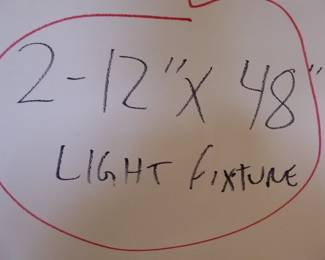 2-12" X 48"
LIGHT FIXTURE